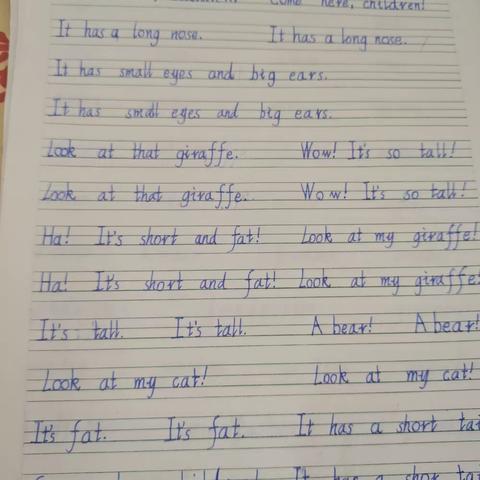 Come here, children!
It has a long nose. It has a long nose.
It has small eyes and big ears.
It has small eyes and big ears.
Look at that giraffe. Wow! It's so tall!
Look at that giraffe. Wow! It's so tall!
Ha! It's short and fat! Look at my giraffe!
Ha! It's short and fat! Look at my giraffe!
It's tall. It's tall. A bear! A bear!
Look at my cat! Look at my cat!
It's fat. It's fat. It has a short
It has a